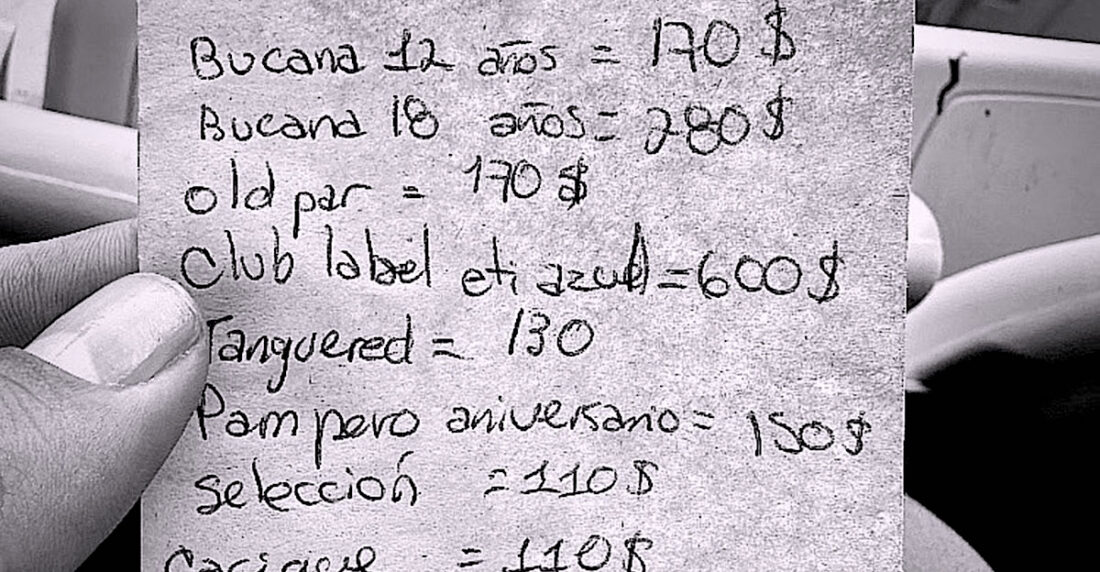 Bucana 12 años = 170 $
Bucana 18 años = 280 $
old par = 170 $
Club label eti azul = 600 $
Tanguered = 130
Pampero aniversario = 150 $
selección = 110 $
Cacique = 110 $